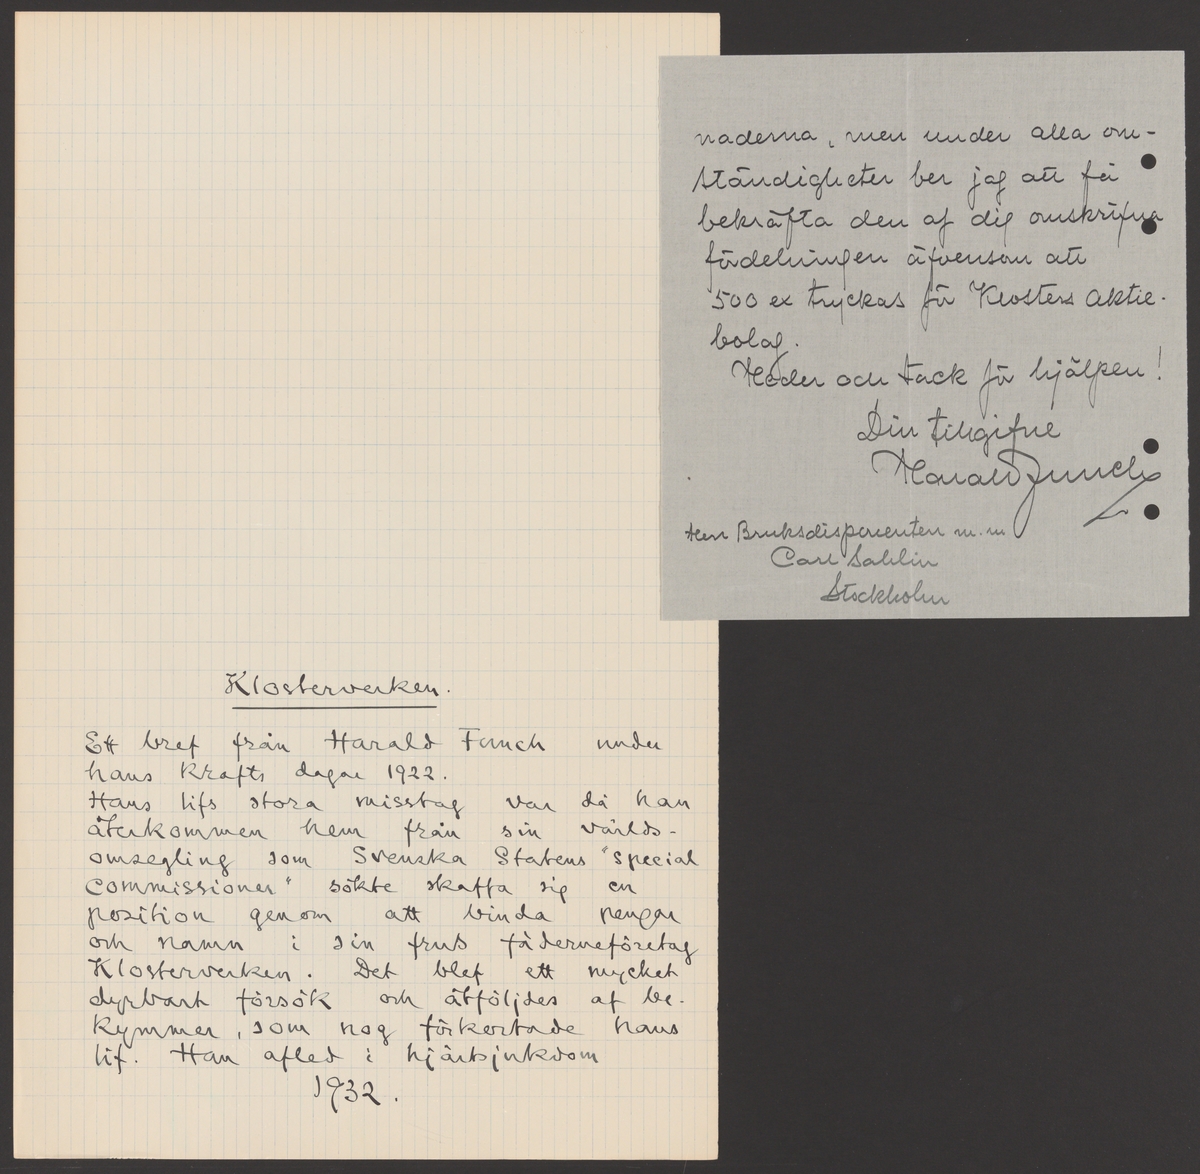 naderna, men under alla om-
ständigheter ber jag att få
bekräfta den af dig omskrifna
fördelningen äfvensom att
500 ex tryckas för Klosters Aktie-
bolag.
Heder och tack för hjälpen!
Din tillgifne
Harald
Herr Bruksdisponenten m.m
Carl Sahlin
Stockholm
Klosterverken.
Ett bref från Harald under
hans krafts dagar 1922.
Hans lifs stora misstag var då han
återkommen hem från sin världs-
omsegling som Svenska Statens "special
commissioner" sökte skaffa sig en
position genom att binda pengar
och namn i sin frus fäderneföretag
Klosterverken. Det blef ett mycket
dyrbart försök och åtföljdes af be-
kymmer, som nog förkortade hans
lif. Han afled i hjärtsjukdom
1932.